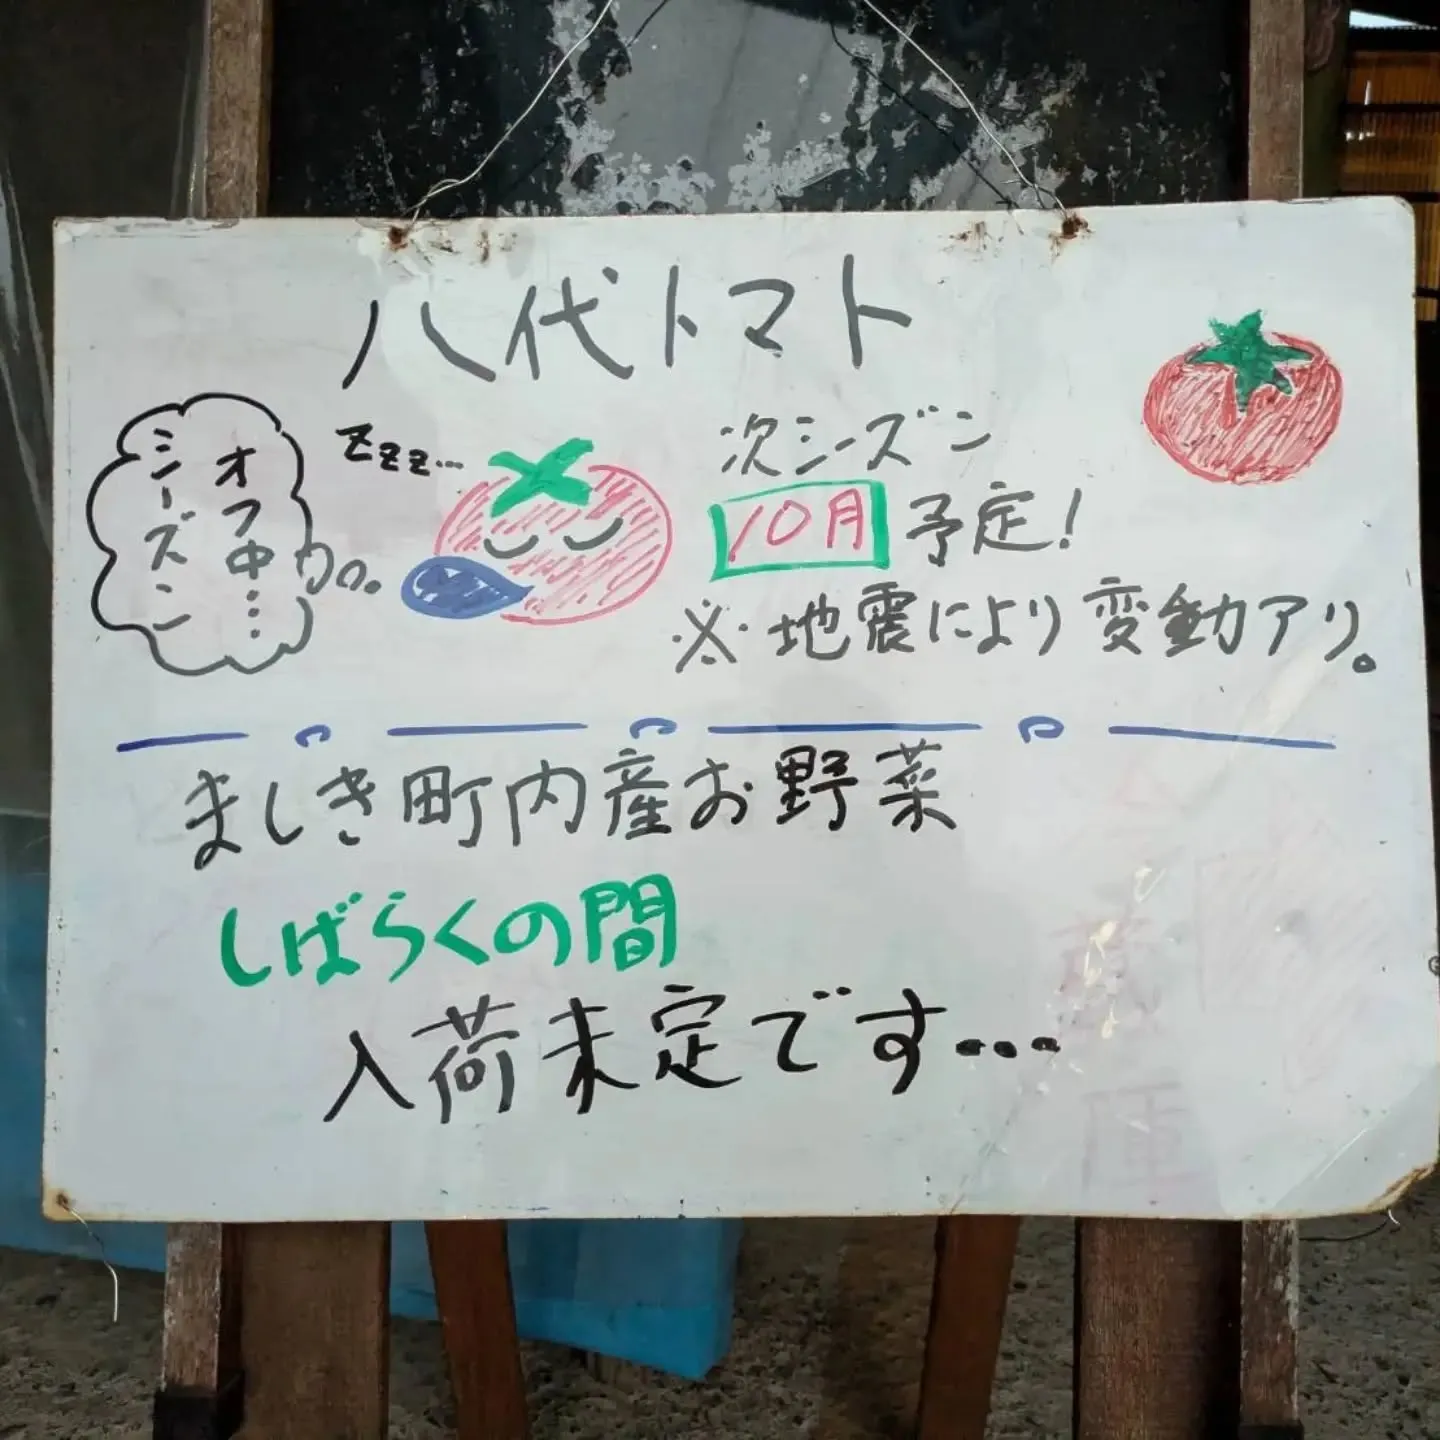 八代トマト
オフ
シーズン
中…
zzz…
次シーズン
10月 予定!
※地震により変動アリ。
ましき町内産お野菜
しばらくの間
入荷未定です…